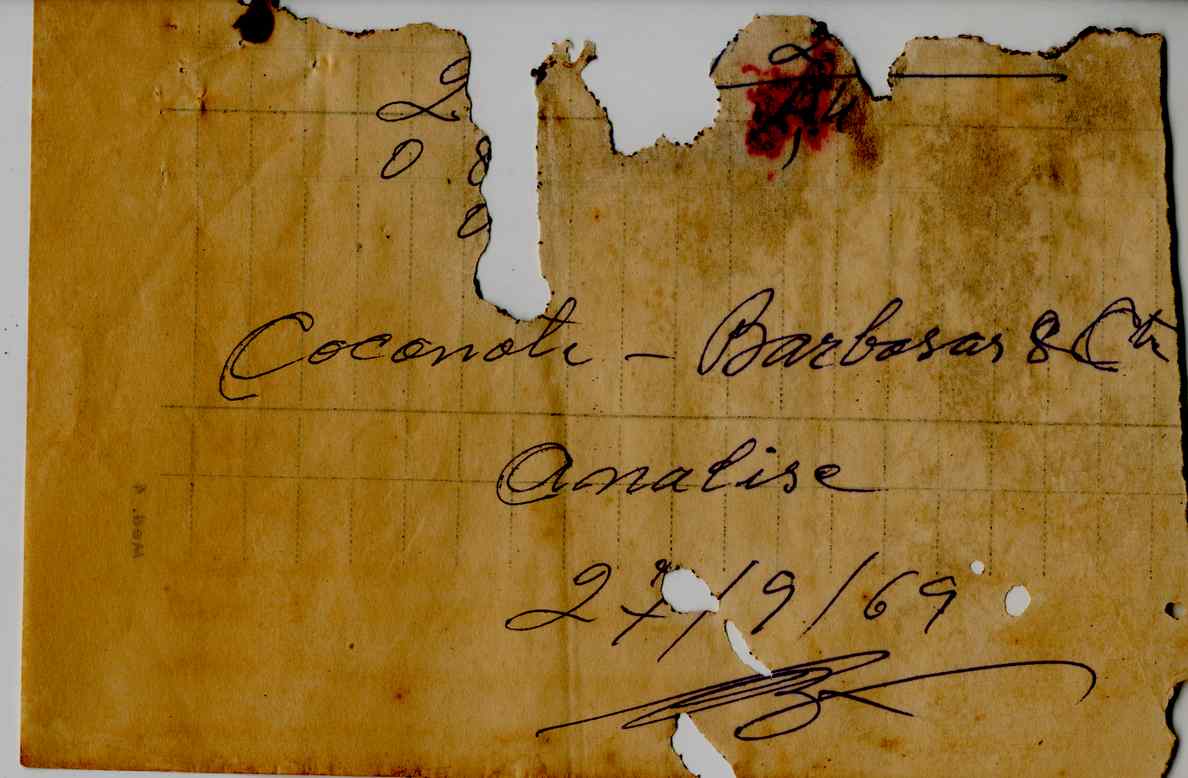 2
2
0 8
0
Coconote - Barbosas & Cta
Analise
27/9/69